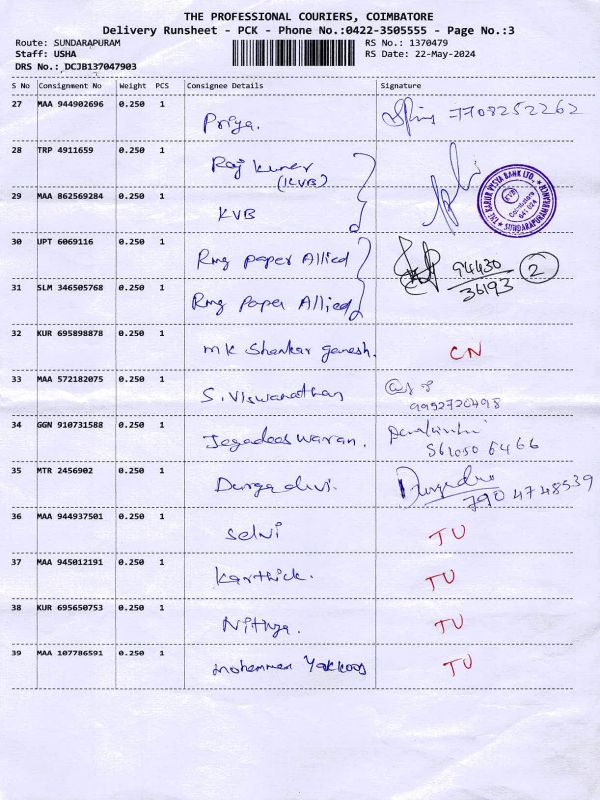 THE PROFESSIONAL COURIERS, COIMBATORE
Delivery Runsheet - PCK - Phone No.:0422-3505555 - Page No.:3
Route: SUNDARAPURAM
RS No.: 1370479
Staff: USHA
RS Date: 22-May-2024
DRS No.: DCJB137047903
S No Consignment No Weight PCS Consignee Details Signature
27 MAA 944902696 0.250 1 Priya. 7708252262
28 TRP 4911659 0.250 1 Raj kumar
(KVB)
29 MAA 862569284 0.250 1 KVB
THE KARUR VYSYA BANK LTD.
KVB
Coimbatore
641 024
SUNDARAPURAM BRANCH
30 UPT 6069116 0.250 1 Rmg paper Allied 94430
36193 2
31 SLM 346505768 0.250 1 Rmg Paper Allied
32 KUR 695898878 0.250 1 MK Shankar ganesh. CN
33 MAA 572182075 0.250 1 S. Viswanathan
9952720498
34 GGN 910731588 0.250 1 Jegadeeswaran.
561050 6466
35 MTR 2456902 0.250 1 Durgadevi. Durgadevi
790 4748539
36 MAA 944937501 0.250 1 Selvi TU
37 MAA 945012191 0.250 1 Karthick. TU
38 KUR 695650753 0.250 1 Nithya. TU
39 MAA 107786591 0.250 1 mohammed Yakkoob TU